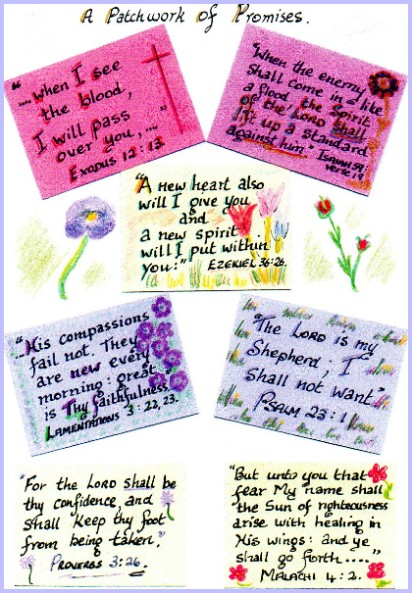 A Patchwork of Promises.
"....when I see
the blood,
I will pass
over you,...."
Exodus 12:13.
"When the enemy
shall come in like
a flood, the Spirit
of the LORD shall
lift up a standard
against him" Isaiah 59
verse 19
"A new heart also
will I give you
and
a new spirit
will I put within
you:" EZEKIEL 36:26.
"His compassions
fail not. They
are new every
morning: great
is Thy faithfulness"
LAMENTATIONS 3:22,23.
"The LORD is my
Shepherd; I
shall not want"
PSALM 23:1
"For the LORD shall be
thy confidence, and
shall keep thy foot
from being taken."
PROVERBS 3:26.
"But unto you that
fear My name shall
the Sun of righteousness
arise with healing in
His wings: and ye
shall go forth....."
MALACHI 4:2.